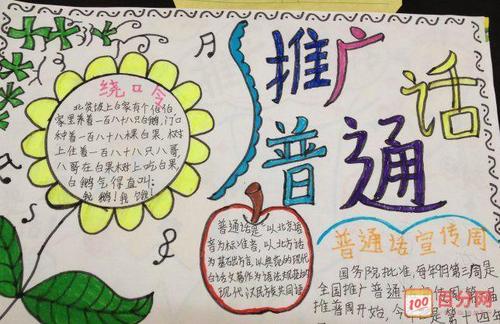 推广普通话
绕口令
北贫坡上白家有个伯伯
家里养着一百八十八只白鹅,门口
种着一百八十八棵白果,树
上住着一百八十八只八哥,
八哥在白果树上吃白果,
白鹅气得直叫:
我鹅!我饿!
普通话是以北京语
音为标准音,以北方话
为基础方言,以典范的现代
白话文著作为语法规范的
现代汉民族共同语
普通话宣传周
国务院批准,每年9月第三周是
全国推广普通
推普周开始,今
是第十四年
100
百分网